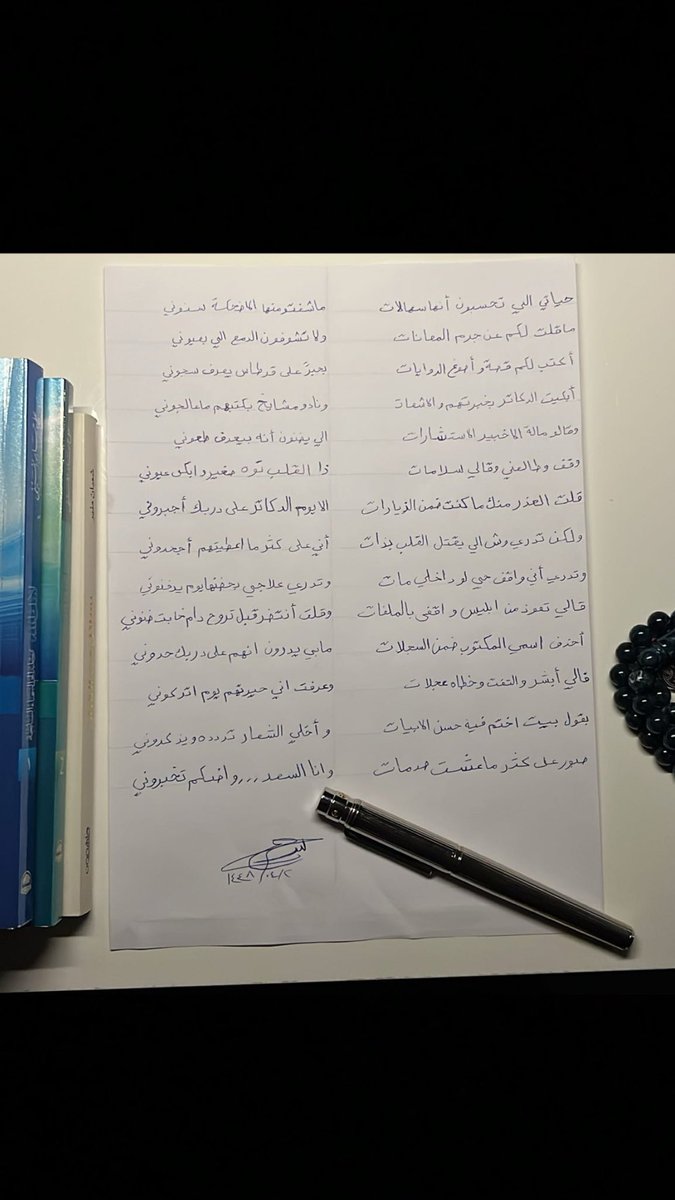 حياتي الي تحسبون أنها سهالات ماشفتو منها الا ضحكة سنوني
ماقلت لكم عن جرم المعانات ولا تشوفون الدمع الي بعيوني
أكتب لكم قصة و أصوغ الروايات بحبرٍ على قرطاس يعرف سجوني
أبكيت الدكاتر بخبرتهم والاشعات ونادو مشايخ بكتبهم ماعالجوني
وقالو مالة الا خبير الاستشارات الي يضنون أنه بيعرف طعوني
وقف وطالعني وقالي سلامات ذا القلب توه صغير وابكى عيوني
قلت العذر منك ما كنت ضمن الزيارات الا يوم الدكاتر على دربك أجبروني
ولكن تدري وش الي يقتل القلب بذات أني على كثر ما اعطيتهم أجحدوني
وتدري أني واقف حي لو داخلي مات وتدري علاجي بحضنها يوم يدفنوني
قالي تعوذ من ابليس و اقفى بالملفات وقلت أنتضر قبل تروح دام خابت ضنوني
أحذف اسمي المكتوب ضمن السجلات مابي يدرون انهم على دربك حدوني
قالي أبشر والتفت وخطاه عجلات وعرفت اني حيرتهم يوم اتركوني
بقول بيت اختم فيه حسن الابيات و أخلي الشعار تردده ويذكروني
صبور على كثر ماعشت صدمات وانا السعد,,,و اضنكم تخبروني
١٤٤٨/٠٤/٢